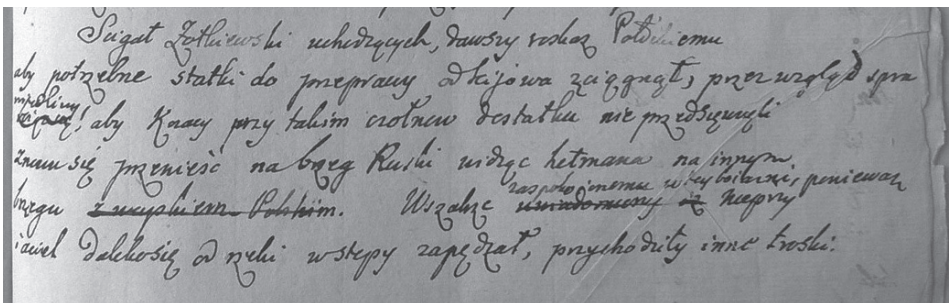 Scigał Żołkiewski uchodzących, dawszy roskaz Potockiemu
aby potrzebne statki do przeprawy od kijowa zciągnął, przez wzgląd spra
aby Kozacy przy takim czołnow dostatku nie przedsięwzięli
znowu się przenieść na brzeg Ruski widząc hetmana na innym
zaspokojonemu w tey boiaźni, ponieważ
brzegu Polskim. Wszakże nieprzy
iaciel daleko się od rzeki w stepy zapędzał, przychodziły inne troski.